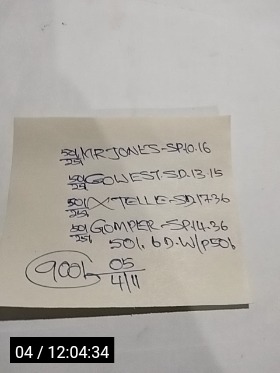 501/251 MR JONES-SP.10.16
501/251 GOWEST-SD.13.15
501/251 X TELLE-SD.17-36
501/251 GOMPER-SP.14-36
501. 6D-W/P50h
900h 05
4/11
04 / 12:04:34